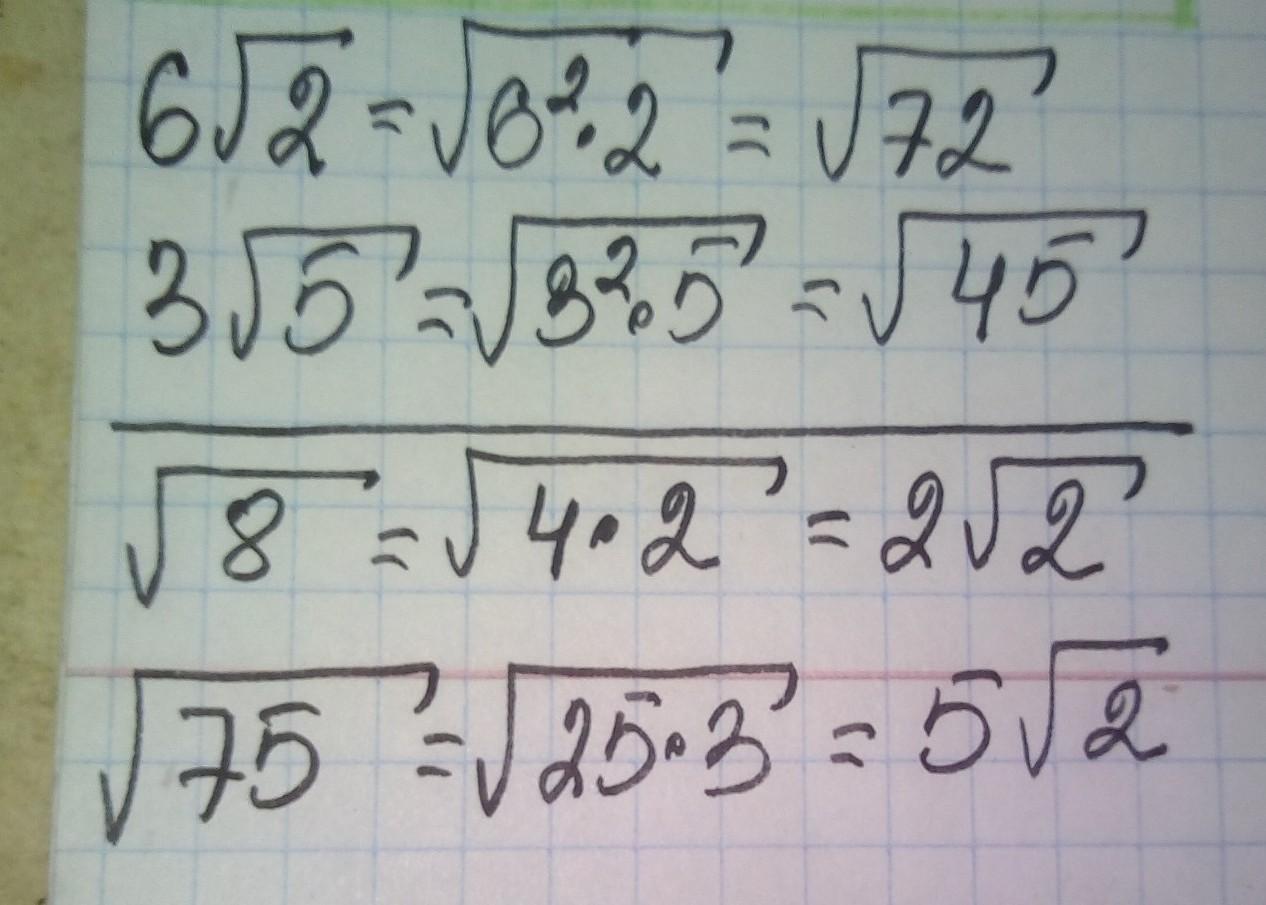 6√2 = √6²·2 = √72
3√5 = √3²·5 = √45
√8 = √4·2 = 2√2
√75 = √25·3 = 5√2